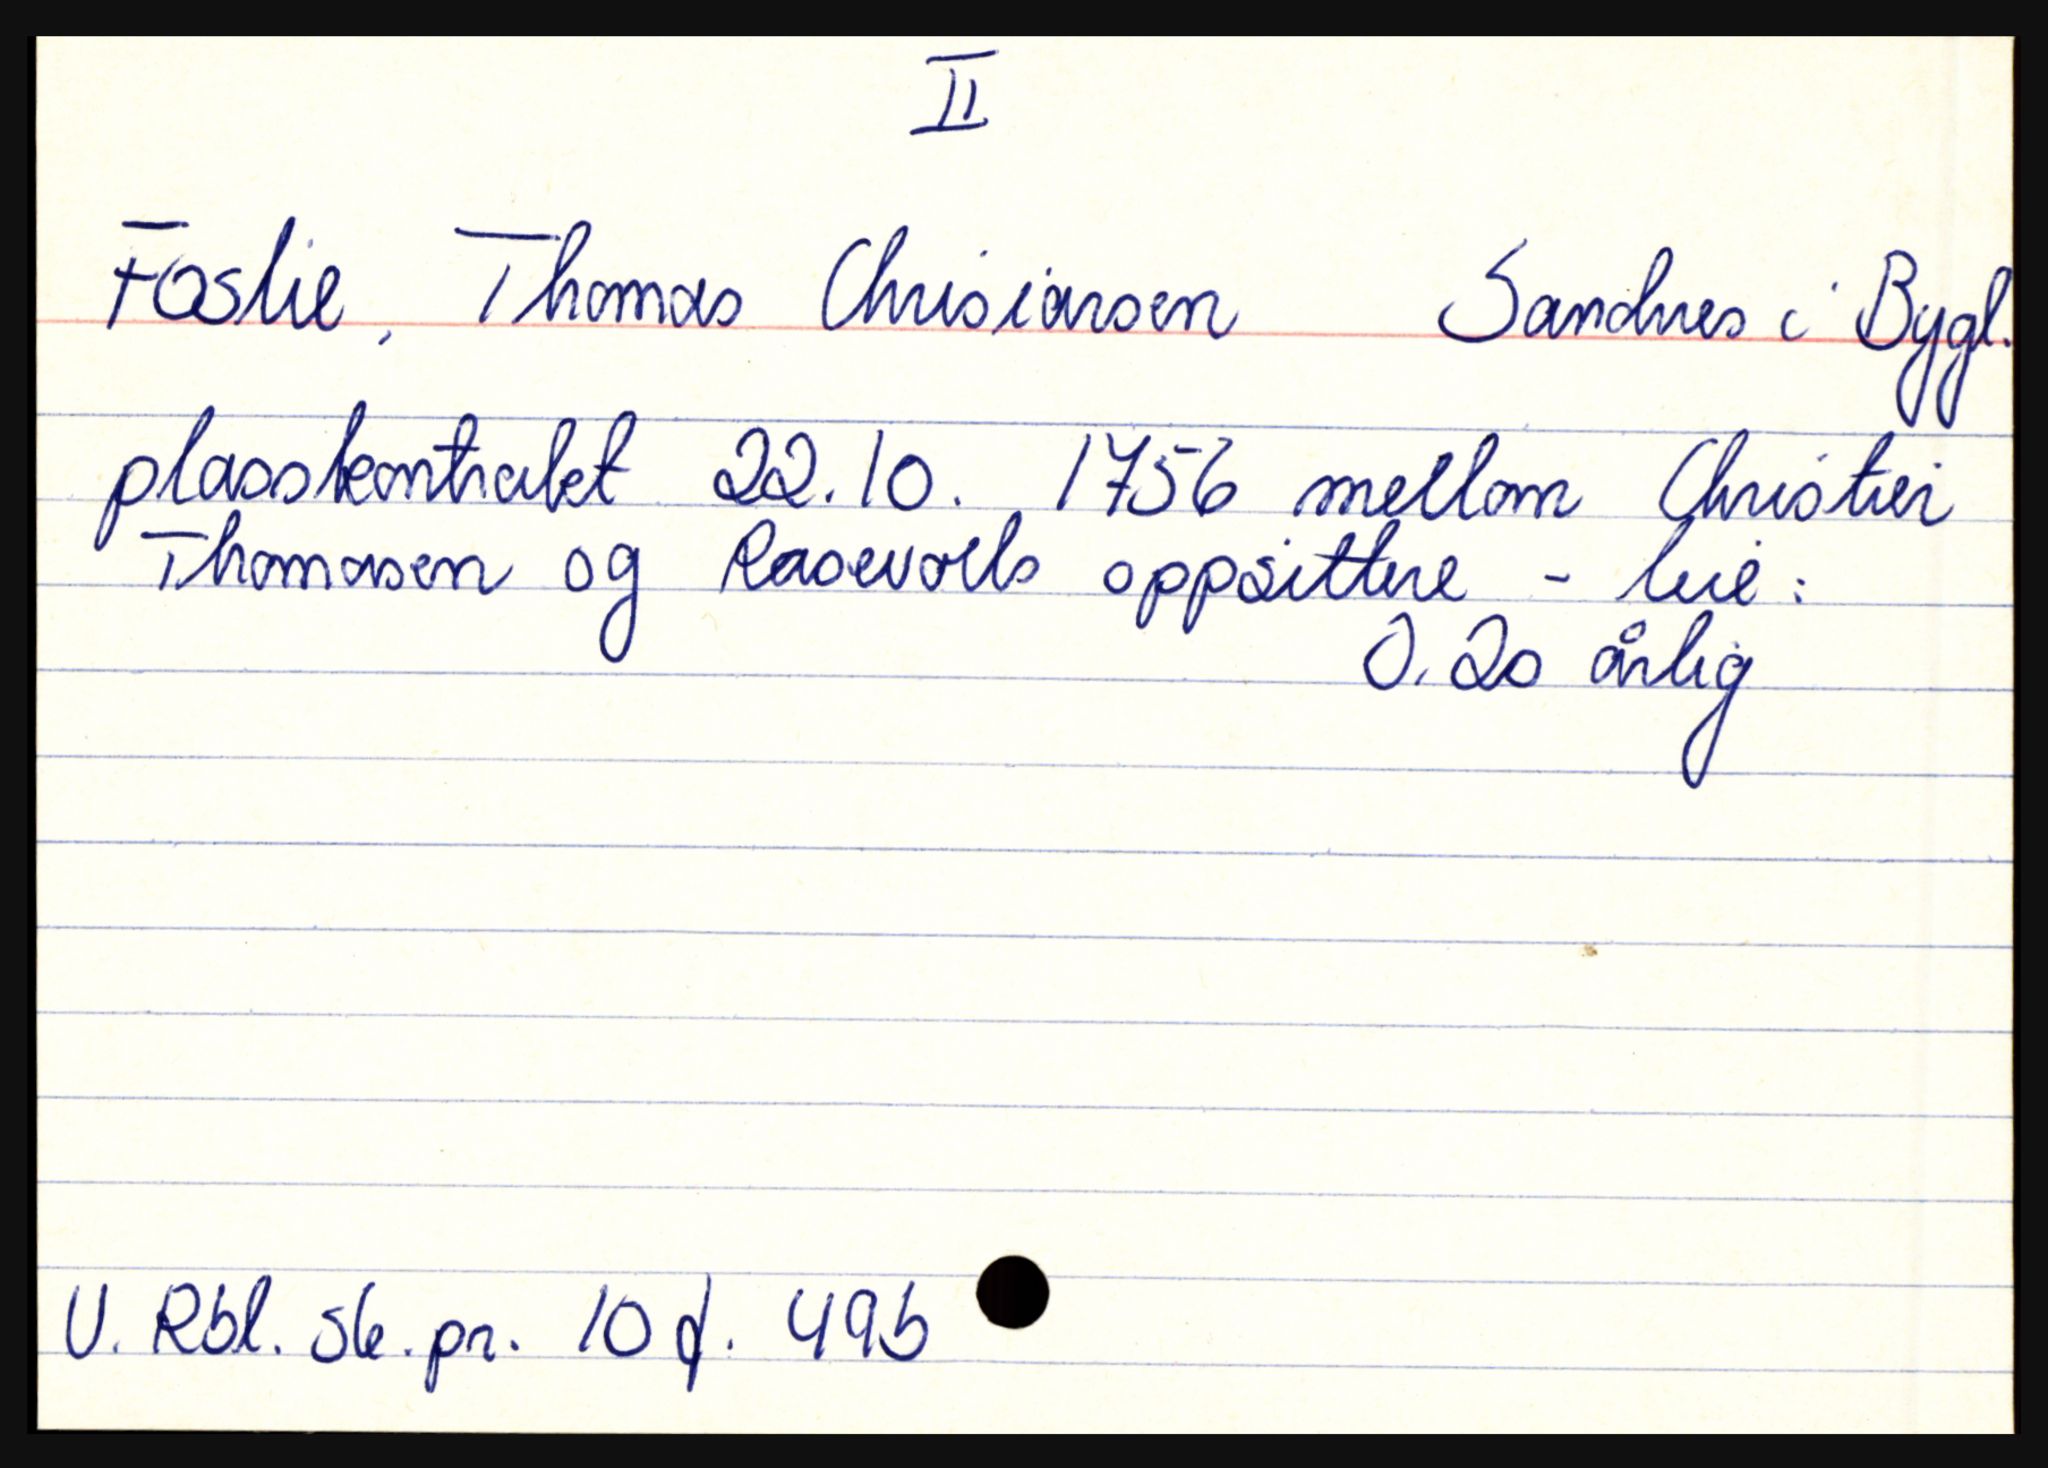 II
Foslie, Thomas Chrisiansen Sandnes i Bygl.
plasskontrakt 22.10. 1756 mellom Christen
Thomasen og Rasevolls oppsittere - leie:
0.20 årlig
V. Rbl. sk.pr. 10 f. 49b